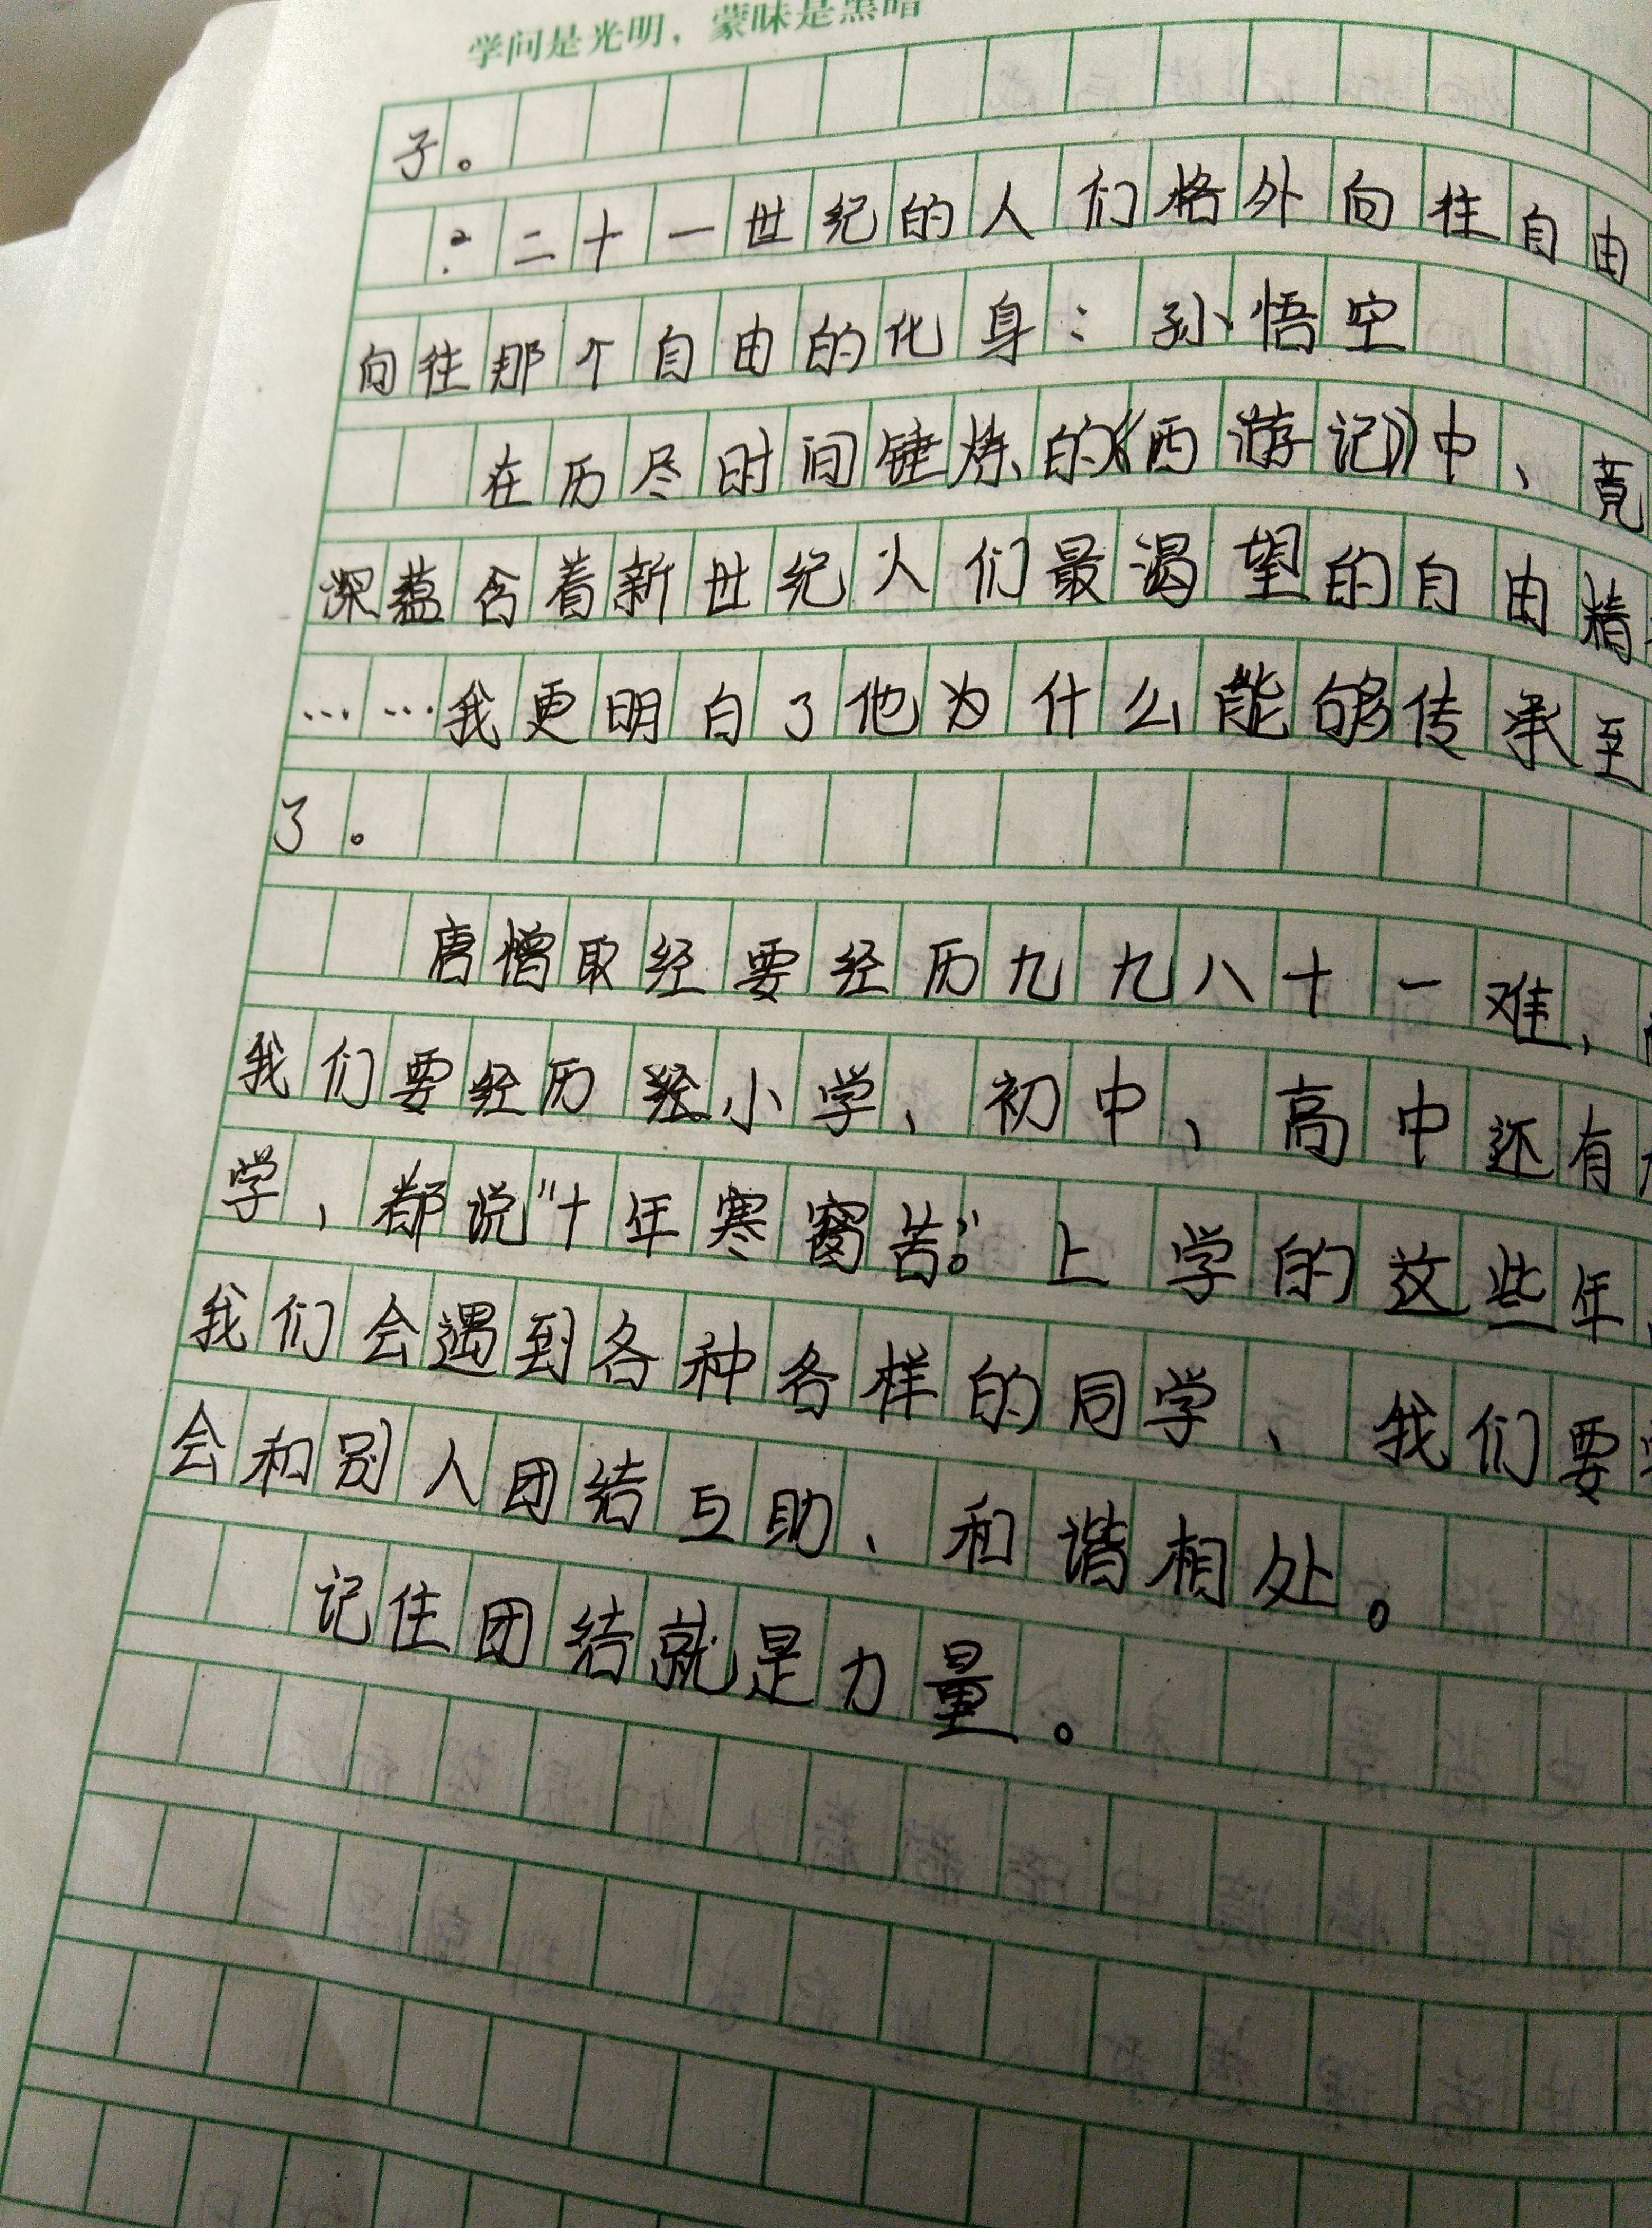 学问是光明，蒙昧是黑暗
子。
？二十一世纪的人们格外向往自由
向往那个自由的化身：孙悟空
在历尽时间锤炼的《西游记》中、竟
深蕴含着新世纪人们最渴望的自由精
……我更明白了他为什么能够传承至
了。
唐憎取经要经历九九八十一难、
我们要经历 小学、初中、高中还有
学，都说“十年寒窗苦。”上学的这些年、
我们会遇到各种各样的同学、我们要
会和别人团结互助、和谐相处。
记住团结就是力量。